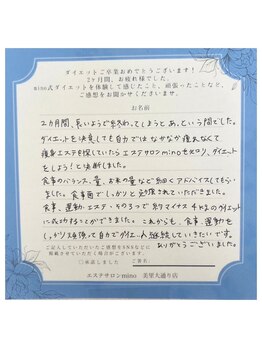 ダイエットご卒業おめでとうございます！
2ヶ月間、お疲れ様でした。
mino式ダイエットを体験して感じたこと、頑張ったことなど、
ご感想をお聞かせくださいませ。
お名前
2カ月間、長いようで終わってしまうとあっという間でした。
ダイエットを決意しても自力ではなかなか痩れなくて
痩身エステを探していたらエステサロンminoを知り、ダイエット
をしよう！と決断しました。
食事のバランス、量、お米の量など細かくアドバイスしてもらい
ました。食事面でしっかりと
食事、運動、エステ、その3つで約マイナス4kgのダイエット
に成功することができました。これからも、食事、運動を
しっかり頑張って自力でダイエット継続していきたいです。
ありがとうございました。
ご記入していただいたご感想をSNSなどに
掲載させていただく場合がございます。
□承諾しました ご署名
エステサロンmino 美里大通り店